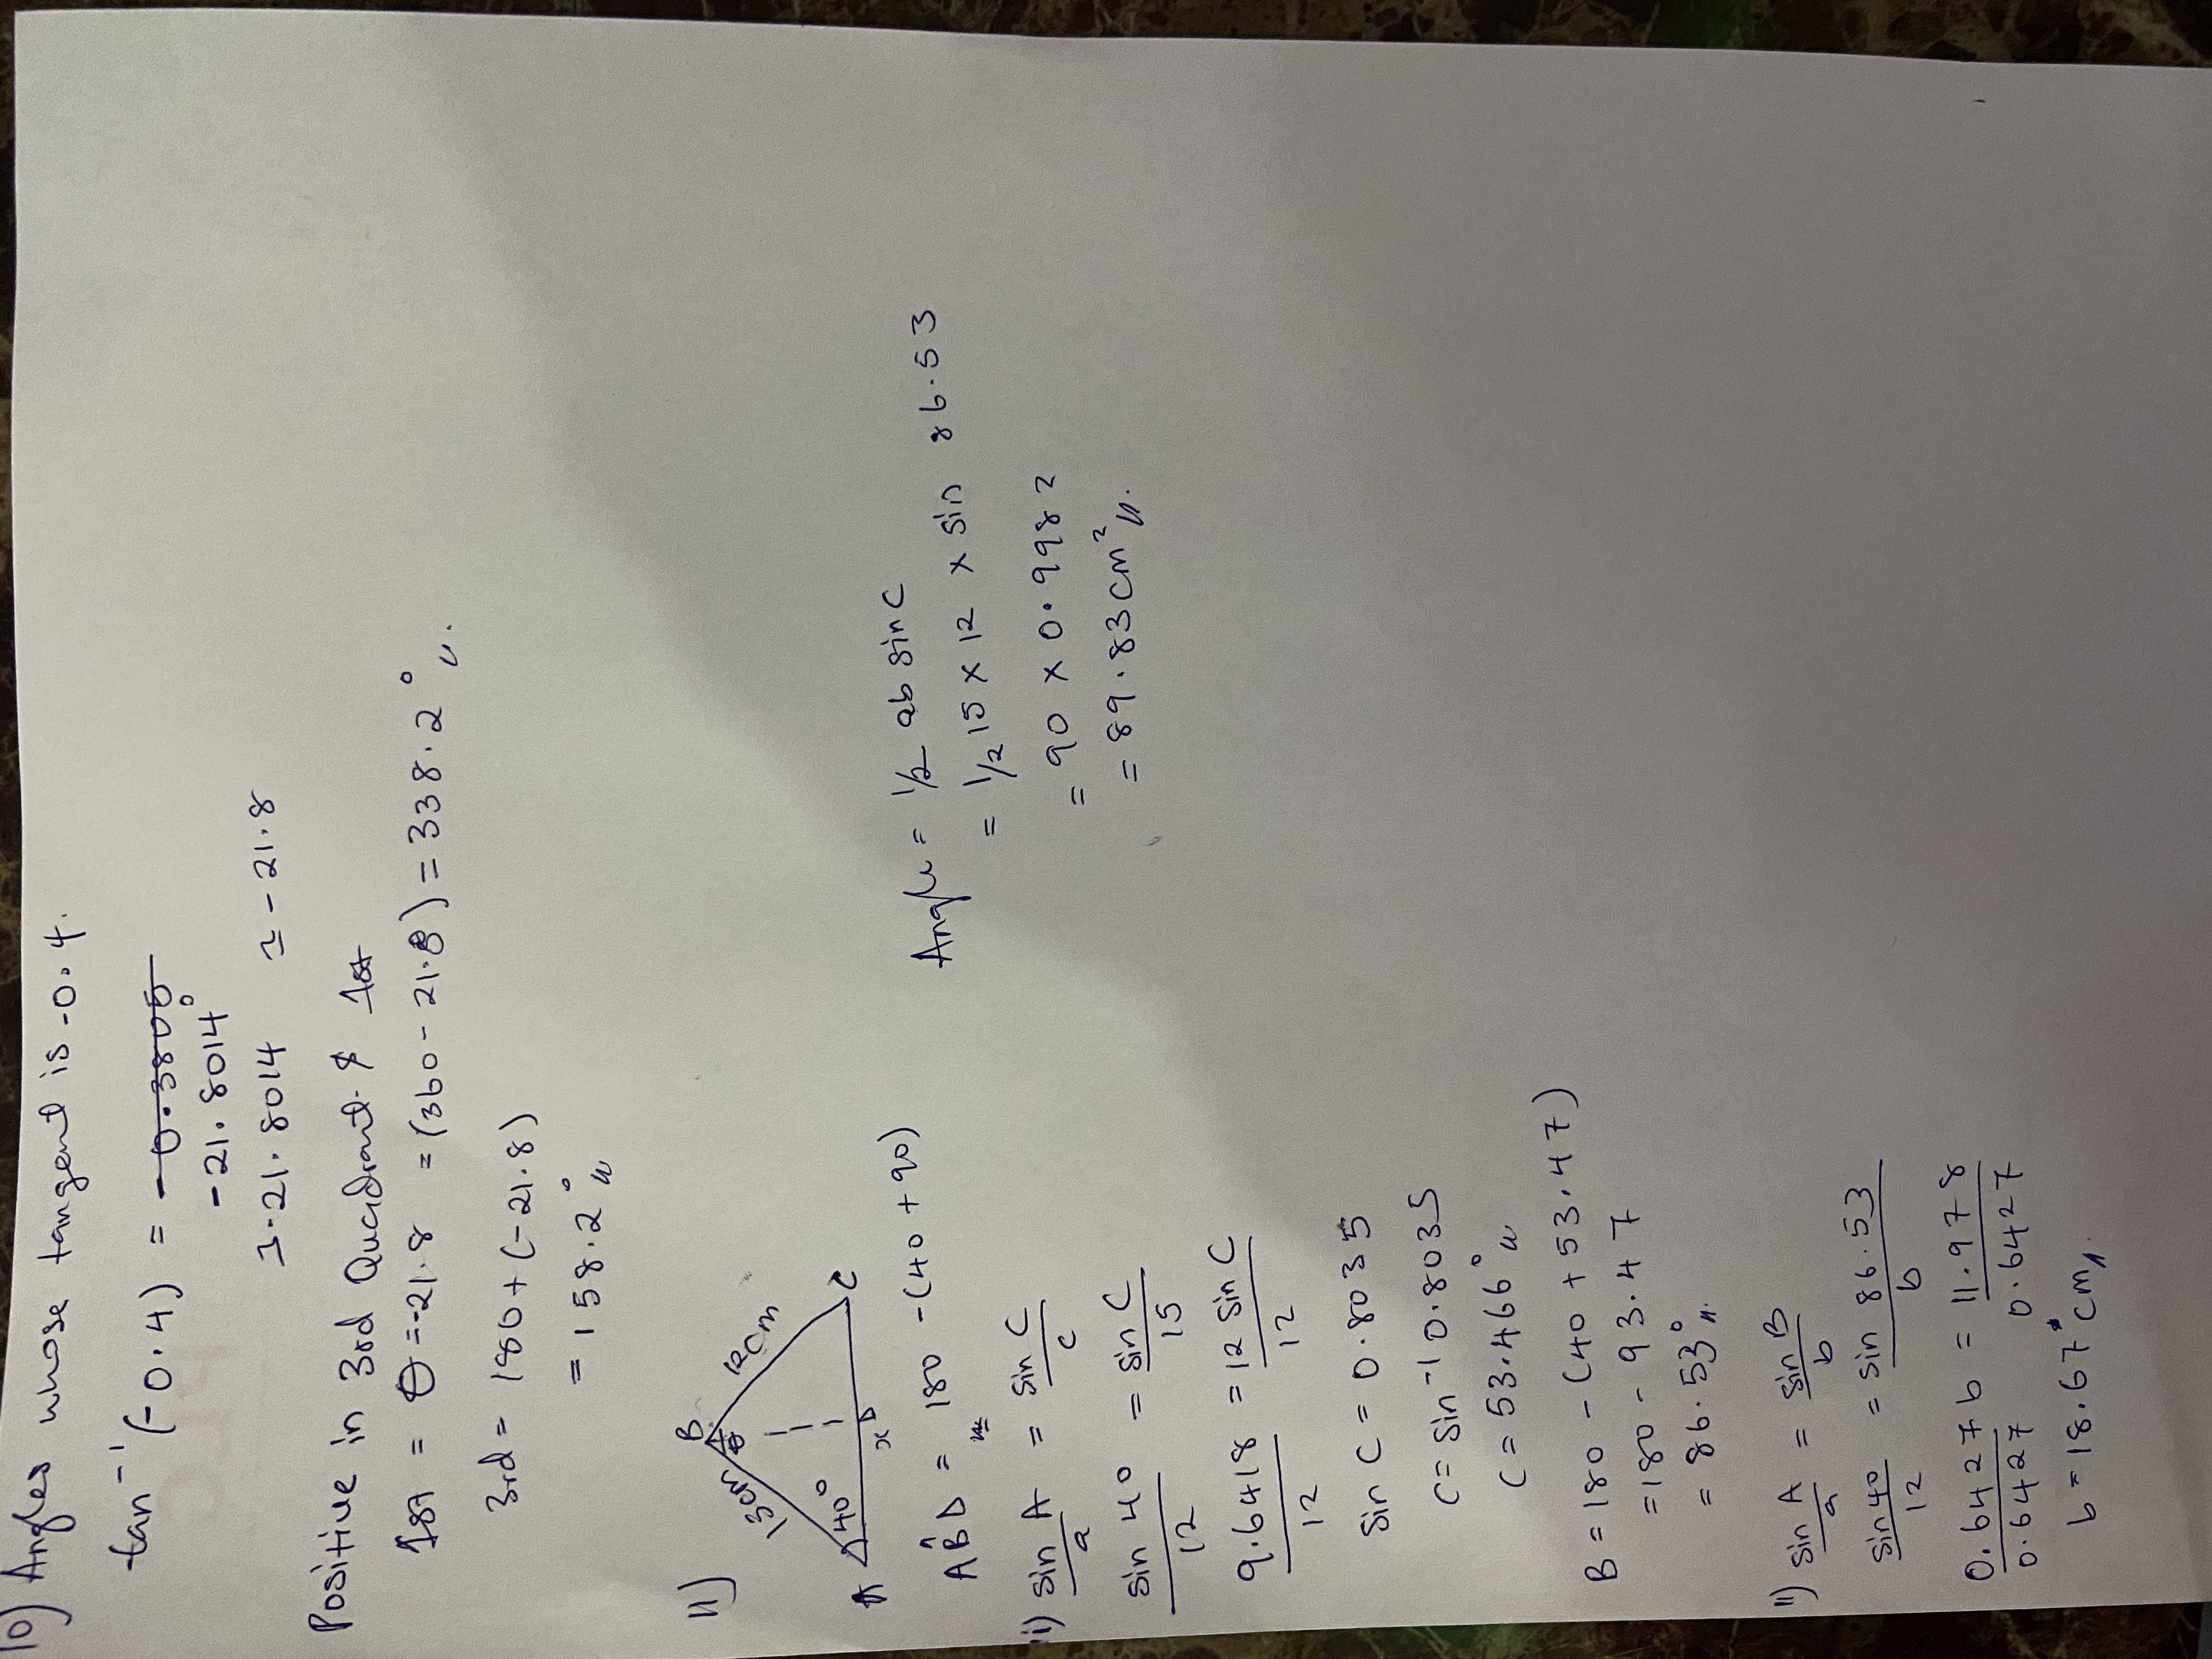 10) Angles whose tangent is -0.4.
tan⁻¹(-0.4) = -0.3805
-21.8014°
-21.8014 ≃ -21.8
Positive in 3rd Quadrant & 1st
1st = θ = -21.8 = (360 - 21.8) = 338.2°
3rd = 180 + (-21.8)
= 158.2°
11)
B
15cm
12cm
θ
40°
A
x
D
C
AB̂D = 180 - (40 + 90)
i) sin A / a = sin C / c
sin 40 / 12 = sin C / 15
9.6418 / 12 = 12 sin C / 12
sin C = 0.8035
C = sin⁻¹ 0.8035
C = 53.466°
B = 180 - (40 + 53.47)
= 180 - 93.47
= 86.53°
ii) sin A / a = sin B / b
sin 40 / 12 = sin 86.53 / b
0.6427 b / 0.6427 = 11.978 / 0.6427
b = 18.67 cm
Angle = 1/2 ab sin C
= 1/2 15 x 12 x sin 86.53
= 90 x 0.9982
= 89.83 cm²